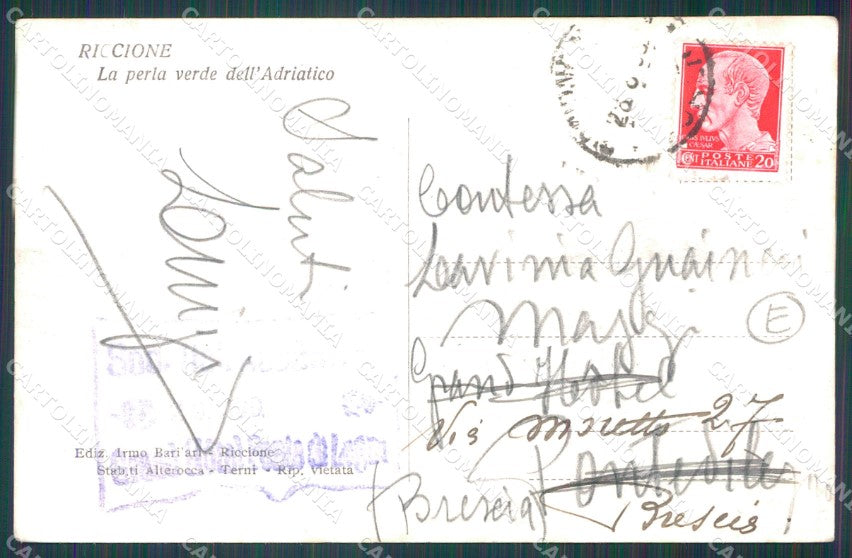 RICCIONE
La perla verde dell'Adriatico
Saluti
Luigi
Ediz. Irmo Bari'ari - Riccione
Stab.ti Alterocca - Terni - Rip. Vietata
IVLIVS
CAESAR
CENT POSTE ITALIANE 20
Contessa
Lavinia
Maggi
Grand Hotel
Via Moretto 27
(Brescia)
Brescia
E
CARTOLINOMANIA